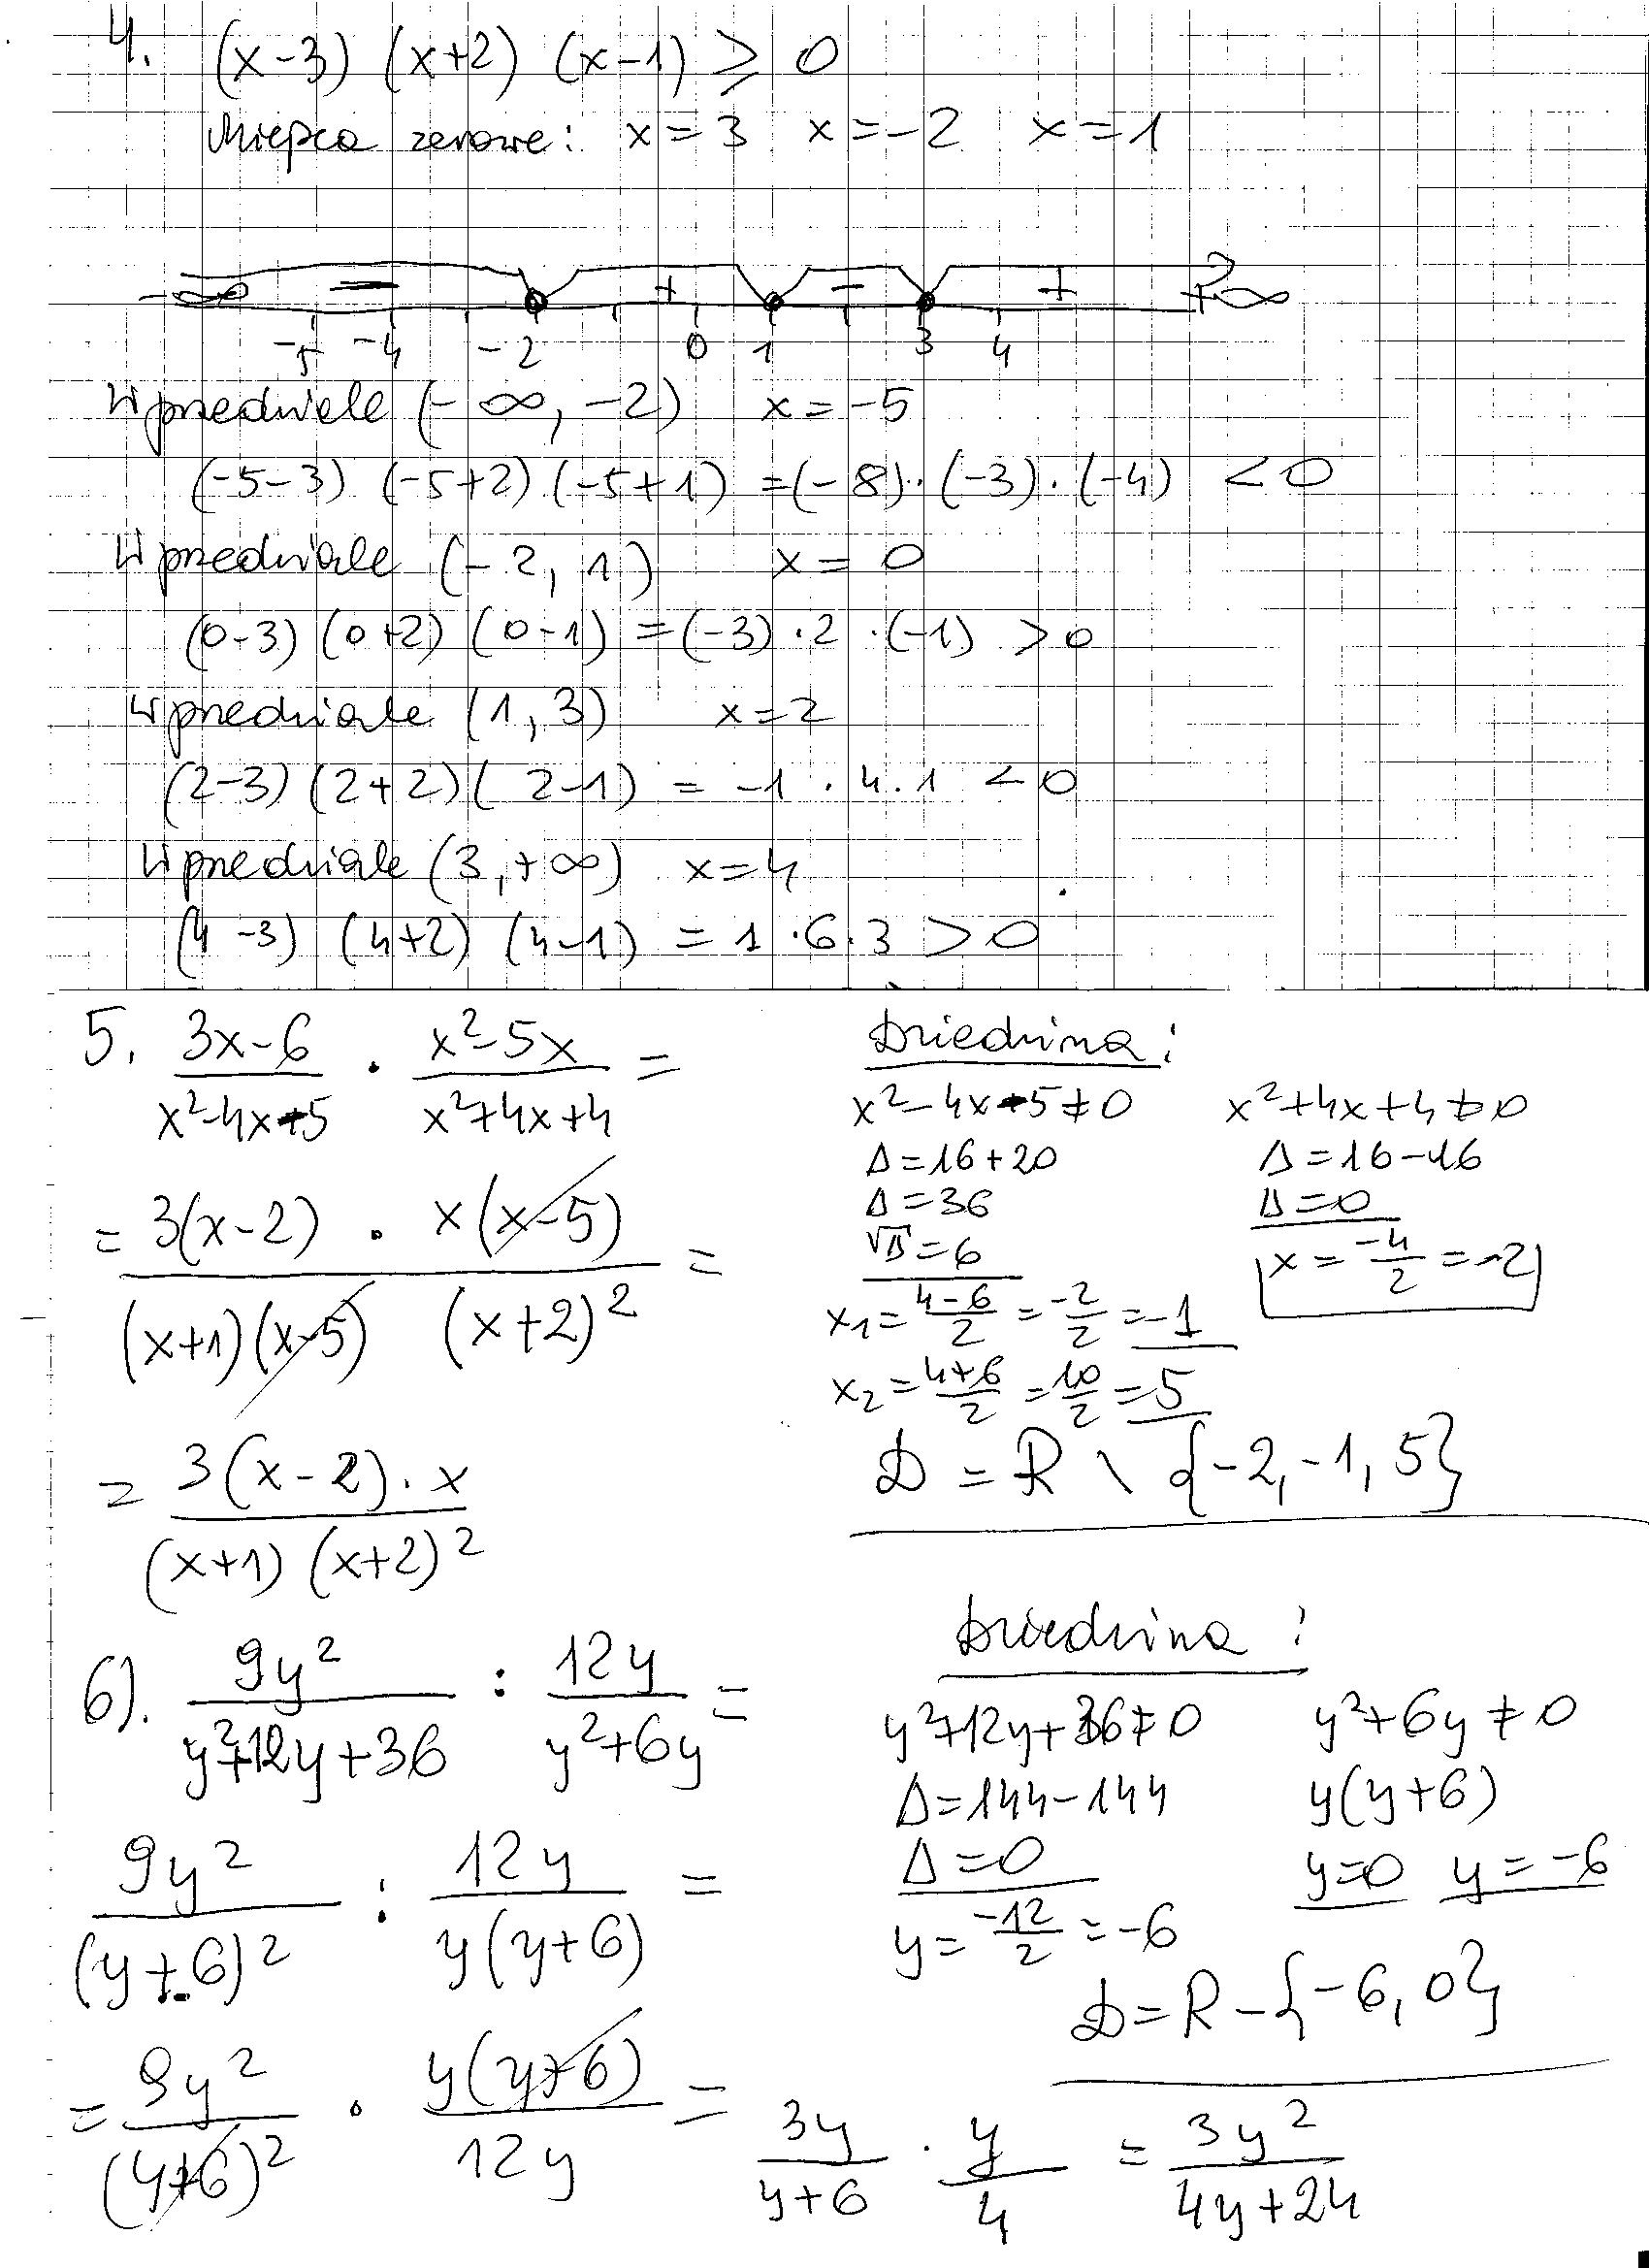 4. (x-3) (x+2) (x-1) ≥ 0
Miejsca zerowe: x=3 x=-2 x=1
-∞ - + - + +∞
-5 -4 -2 0 1 3 4
W przedziele (-∞, -2) x=-5
(-5-3) (-5+2) (-5+1) =(-8)·(-3)·(-4) <0
W przedziale (-2, 1) x=0
(0-3) (0+2) (0-1) =(-3)·2·(-1) >0
W przedziale (1, 3) x=2
(2-3) (2+2) (2-1) = -1·4·1 <0
W przedziale (3,+∞) x=4
(4-3) (4+2) (4-1) = 1·6·3 >0
5. (3x-6)/(x²-4x-5) · (x²-5x)/(x²+4x+4) =
= 3(x-2) · x(x-5) / (x+1)(x-5) (x+2)² =
= 3(x-2)·x / (x+1) (x+2)²
Dziedzina:
x²-4x-5≠0 x²+4x+4≠0
Δ=16+20 Δ=16-16
Δ=36 Δ=0
√Δ=6 x=-4/2=-2
x₁=(4-6)/2=-2/2=-1
x₂=(4+6)/2=10/2=5
D=R \ {-2,-1,5}
6). 9y²/(y²+12y+36) : 12y/(y²+6y) =
9y²/(y+6)² : 12y/y(y+6) =
= 9y²/(y+6)² · y(y+6)/12y = 3y/(y+6) · y/4 = 3y²/(4y+24)
Dziedzina:
y²+12y+36≠0 y²+6y≠0
Δ=144-144 y(y+6)
Δ=0 y=0 y=-6
y=-12/2=-6
D=R-{-6,0}